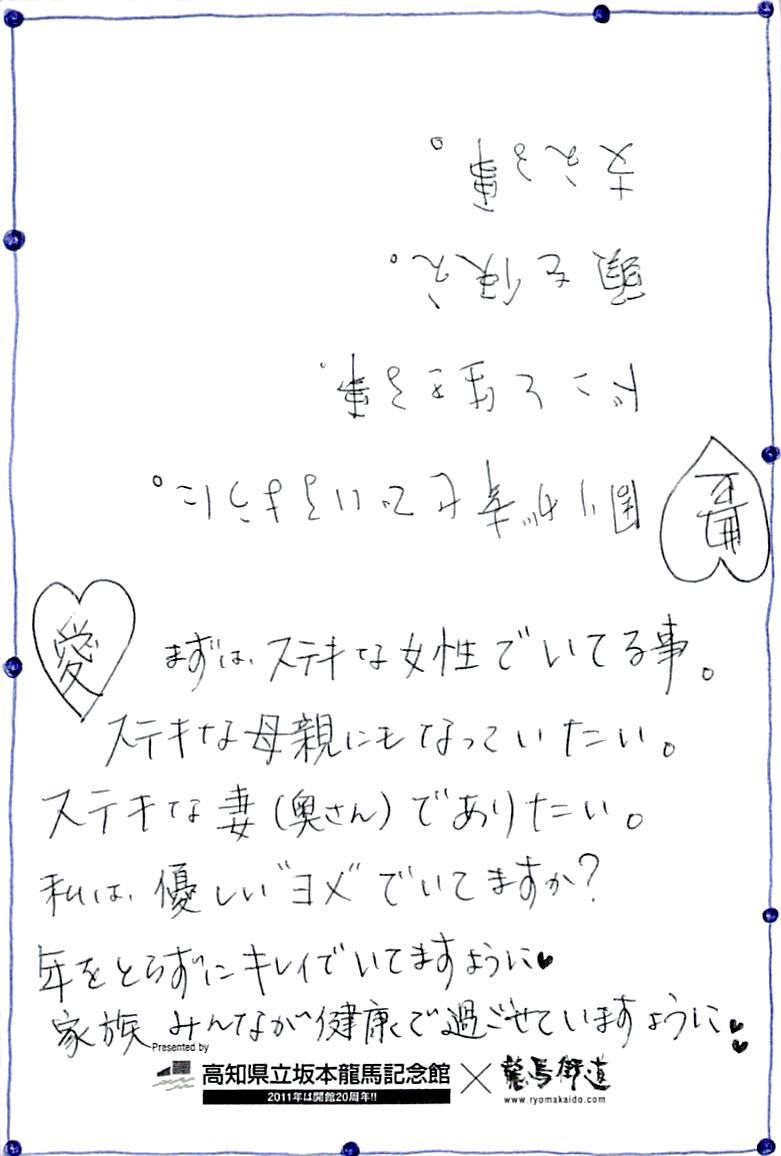 愛
まずは、ステキな女性でいてる事。
ステキな母親にもなっていたい。
ステキな妻(奥さん)でありたい。
私は、優しい"ヨメ"でいてますか?
年をとらずにキレイでいてますように♥
家族みんなが健康で過ごせていますように♥♥
Presented by
高知県立坂本龍馬記念館 × 龍馬街道
2011年は開館20周年!!
www.ryomakaido.com
周りが幸せでいますように。
る事。
頭を使え。
支える事。